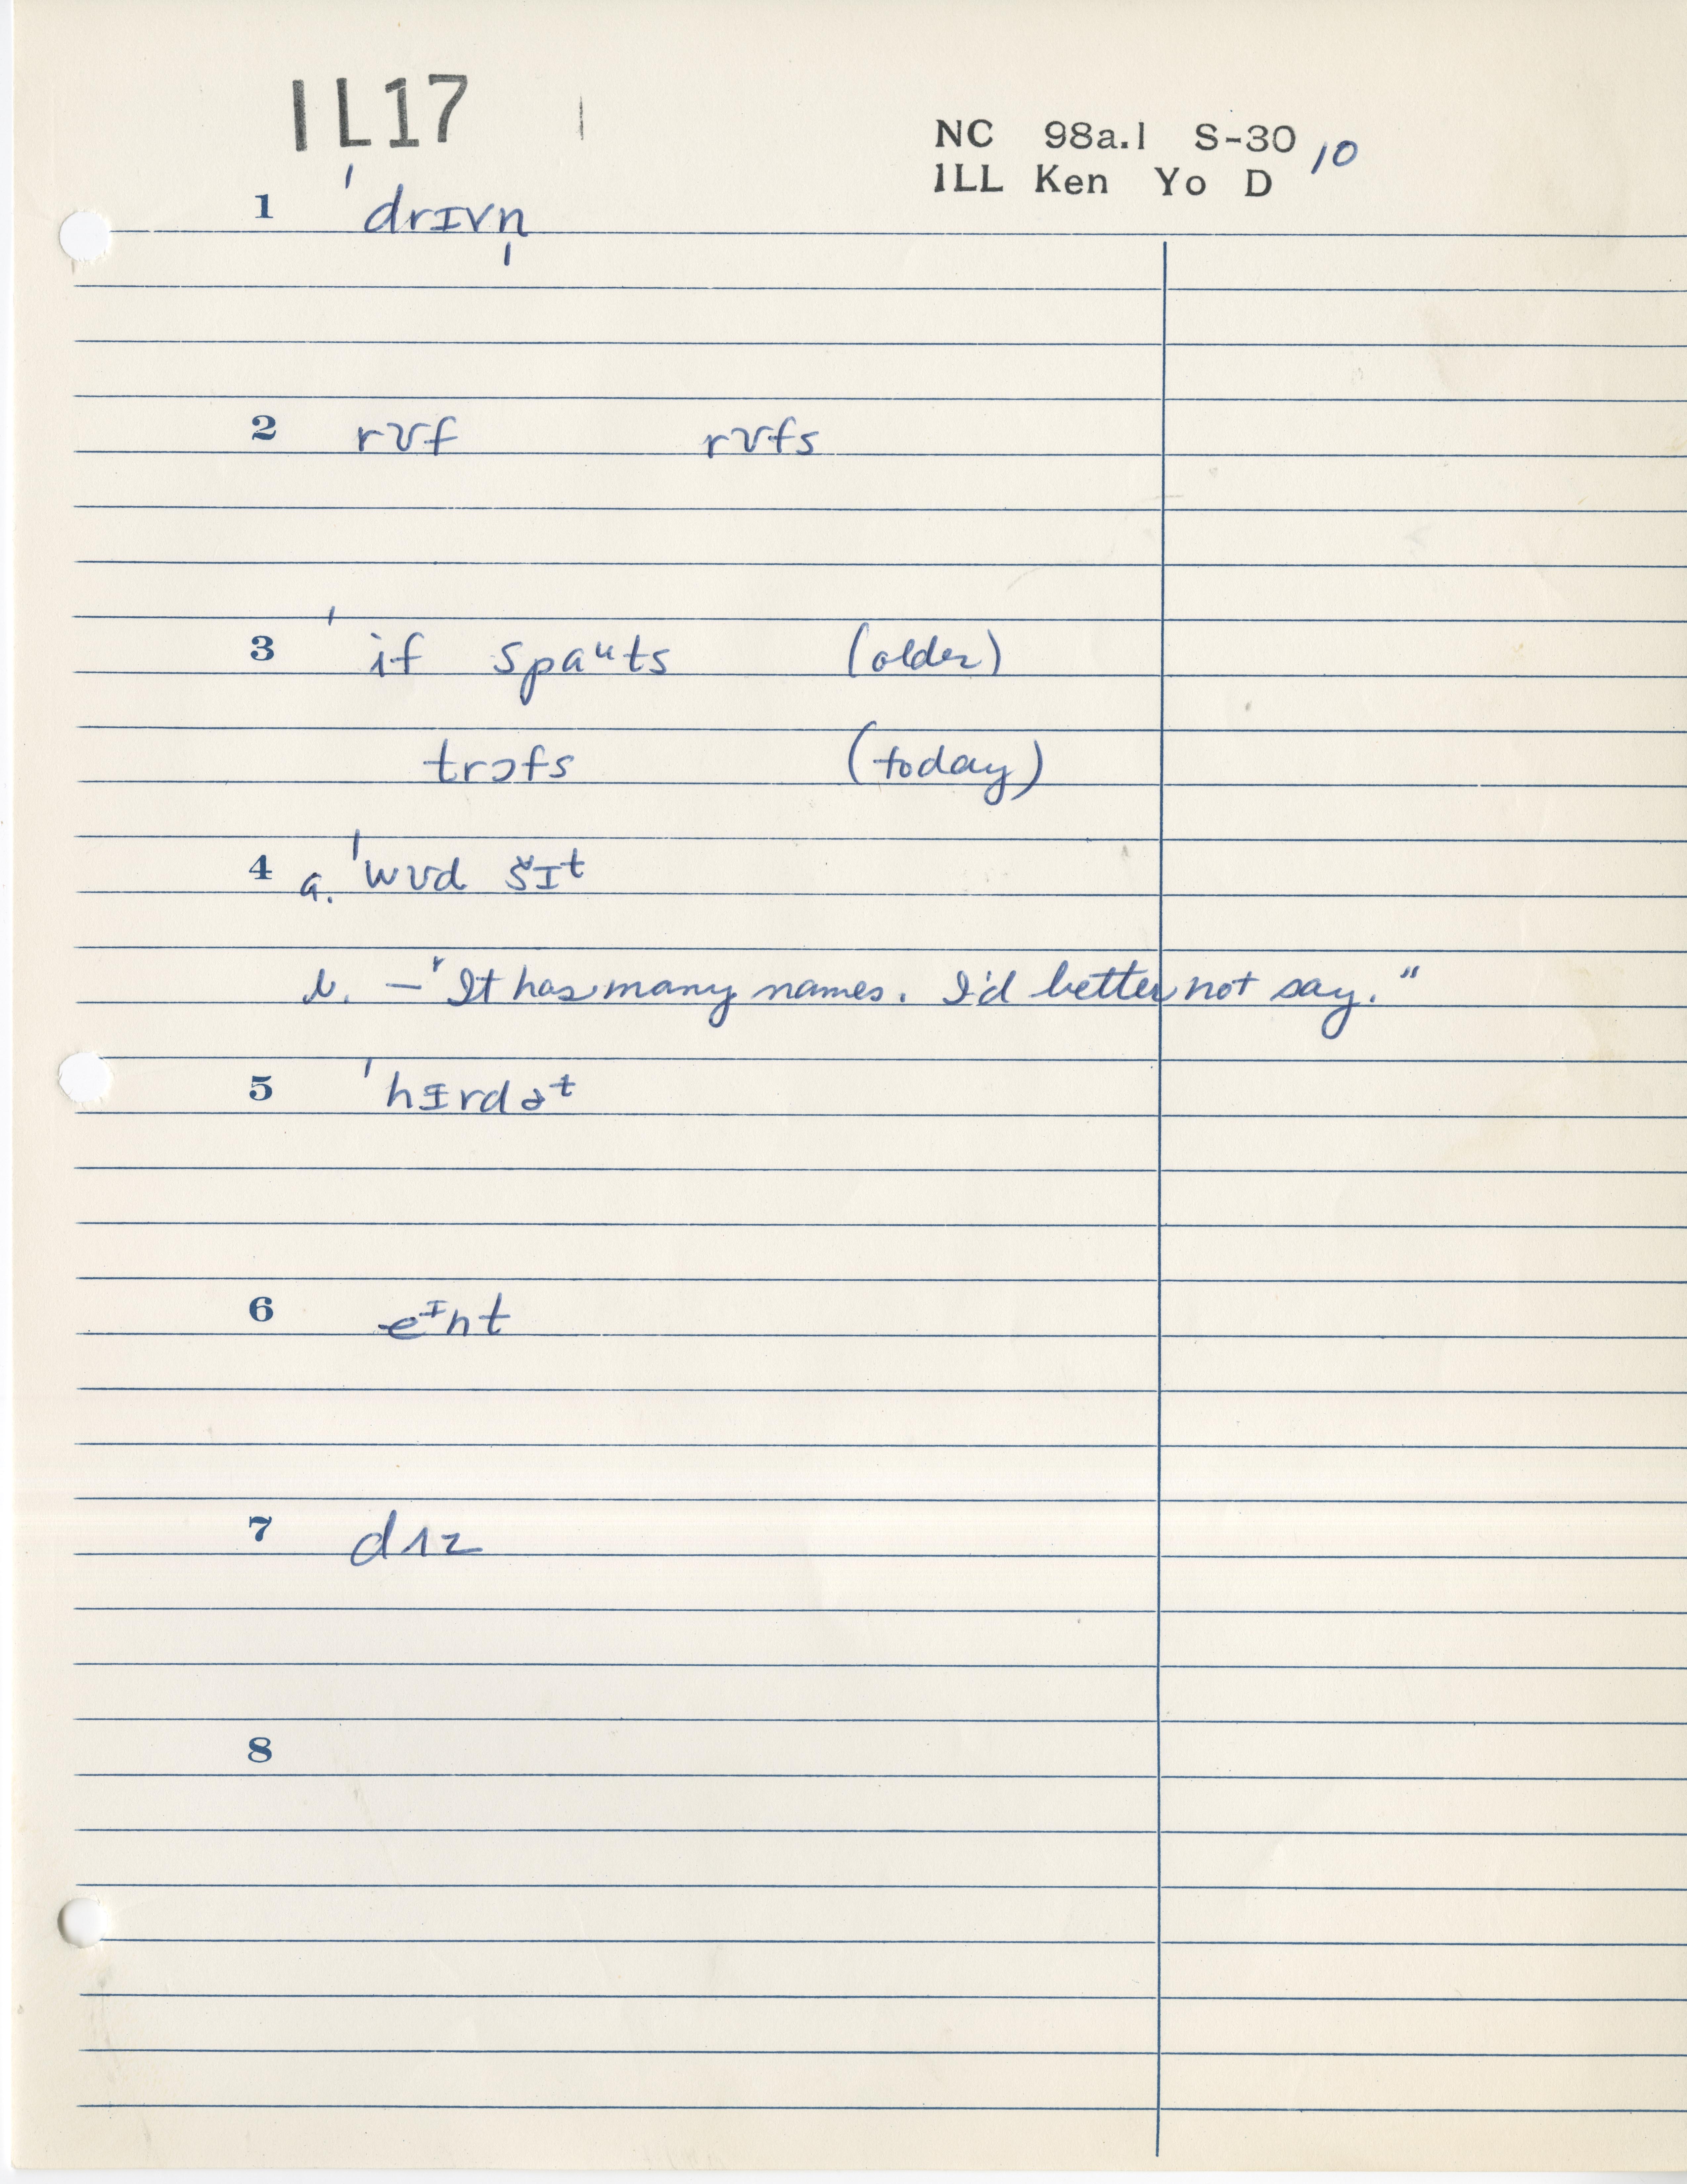 IL17
NC 98a.1 S-30 10
ILL Ken Yo D
1 ˈdrɪvn̩
2 rʊf rʊfs
3 ˈif spaᵘts (older)
trɔfs (today)
4 a. ˈwʊd šɪᵗ
b. — "It has many names. I'd better not say."
5 ˈhɪrdəᵗ
6 eᶦnt
7 dʌz
8